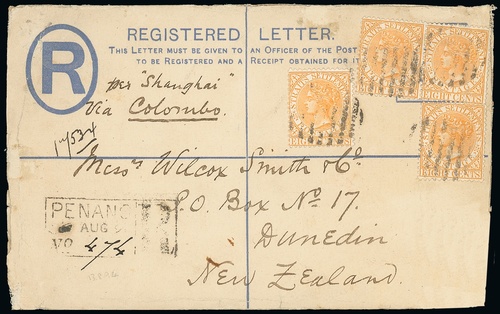 REGISTERED LETTER.
THIS LETTER MUST BE GIVEN TO AN OFFICER OF THE POST
TO BE REGISTERED AND A RECEIPT OBTAINED FOR IT
R
per "Shanghai"
Via Colombo.
STRAITS SETTLEMENTS
EIGHT CENTS
EIGHT CENTS
EIGHT CENTS
Messrs Wilcox Smith & Co
P.O. Box No. 17.
Dunedin
New Zealand.
PENANG
AUG
No 474